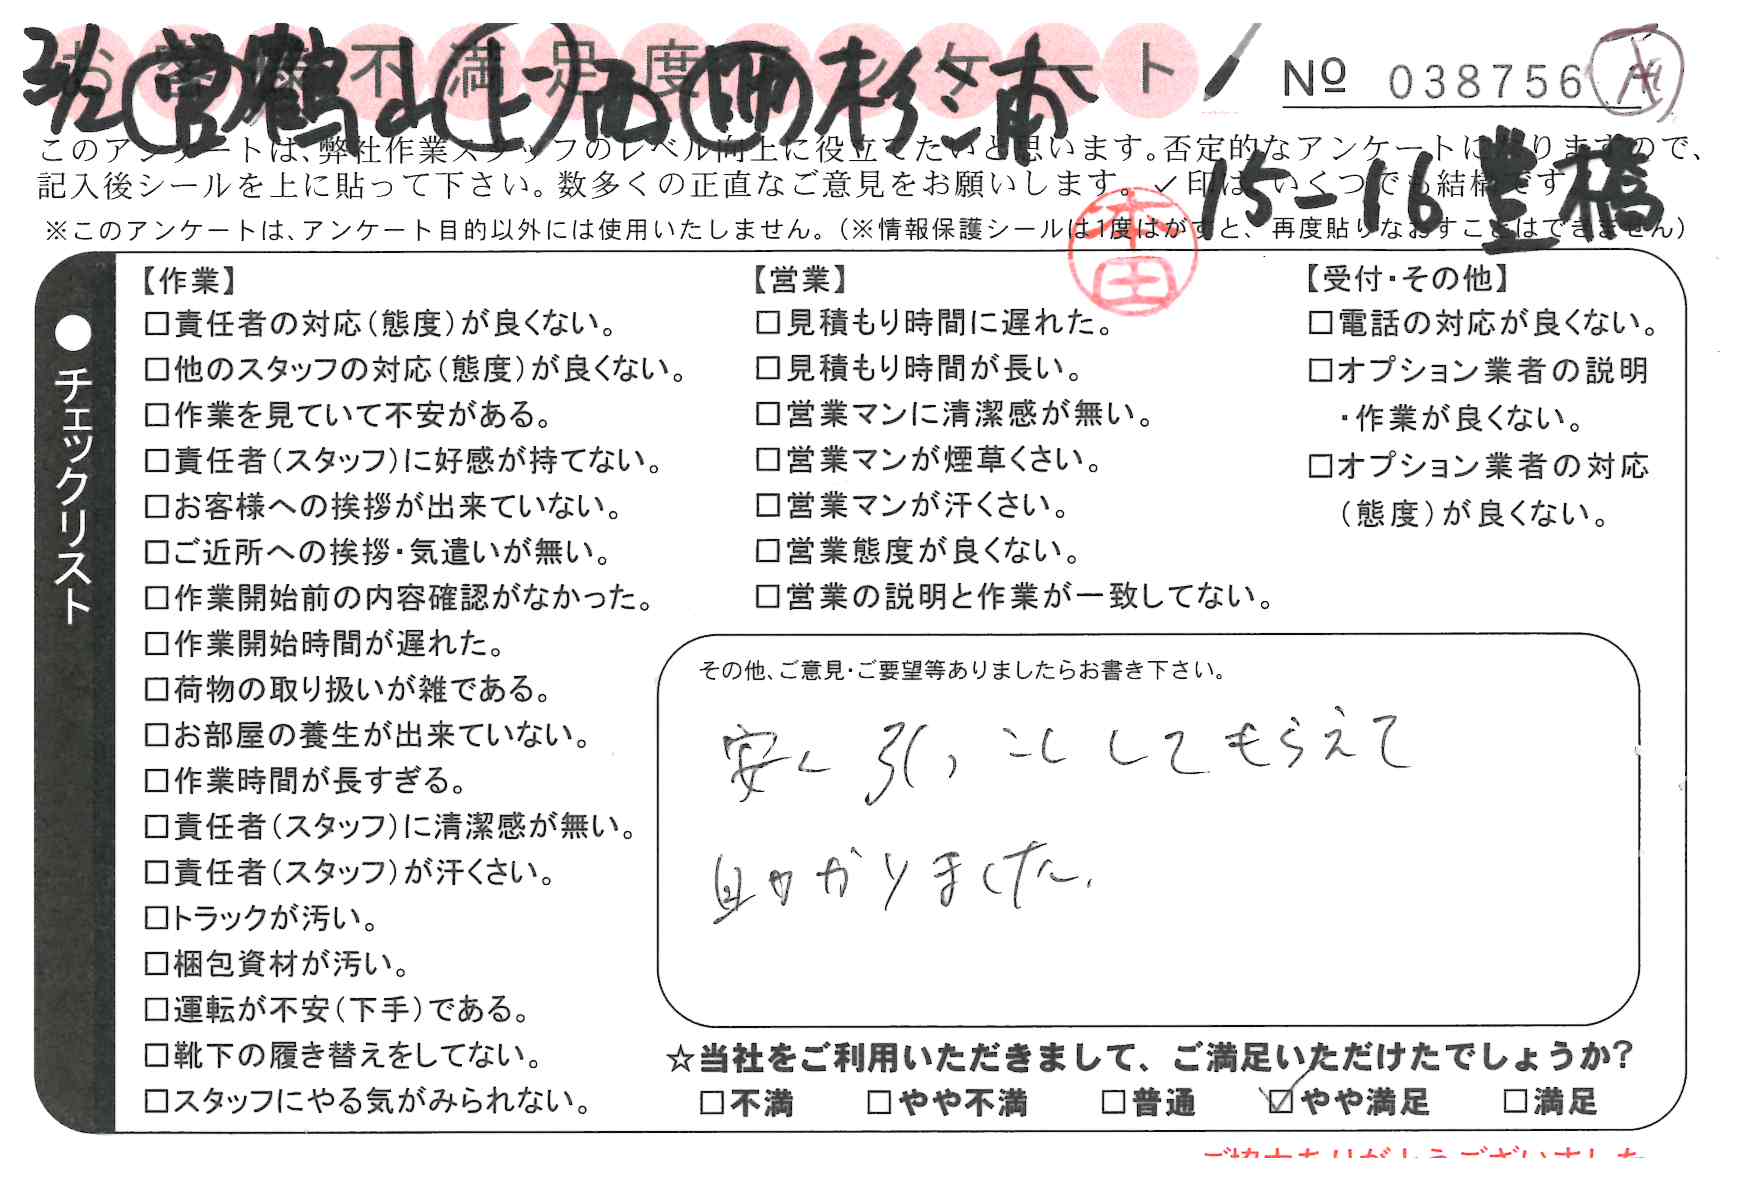 お客様不満足度アンケート
3/2 営 鶴山 上 西 助 杉浦
No 038756
このアンケートは、弊社作業スタッフのレベル向上に役立てたいと思います。否定的なアンケートになりますので、
記入後シールを上に貼って下さい。数多くの正直なご意見をお願いします。✓印は、いくつでも結構です
15-16 豊橋
※このアンケートは、アンケート目的以外には使用いたしません。(※情報保護シールは1度はがすと、再度貼りなおすことはできません)
本田
●チェックリスト
【作業】
□責任者の対応(態度)が良くない。
□他のスタッフの対応(態度)が良くない。
□作業を見ていて不安がある。
□責任者(スタッフ)に好感が持てない。
□お客様への挨拶が出来ていない。
□ご近所への挨拶・気遣いが無い。
□作業開始前の内容確認がなかった。
□作業開始時間が遅れた。
□荷物の取り扱いが雑である。
□お部屋の養生が出来ていない。
□作業時間が長すぎる。
□責任者(スタッフ)に清潔感が無い。
□責任者(スタッフ)が汗くさい。
□トラックが汚い。
□梱包資材が汚い。
□運転が不安(下手)である。
□靴下の履き替えをしてない。
□スタッフにやる気がみられない。
【営業】
□見積もり時間に遅れた。
□見積もり時間が長い。
□営業マンに清潔感が無い。
□営業マンが煙草くさい。
□営業マンが汗くさい。
□営業態度が良くない。
□営業の説明と作業が一致してない。
【受付・その他】
□電話の対応が良くない。
□オプション業者の説明
・作業が良くない。
□オプション業者の対応
(態度)が良くない。
その他、ご意見・ご要望等ありましたらお書き下さい。
安く引っこししてもらえて
助かりました.
☆当社をご利用いただきまして、ご満足いただけたでしょうか?
□不満 □やや不満 □普通 ☑やや満足 □満足
ご協力ありがとうございました